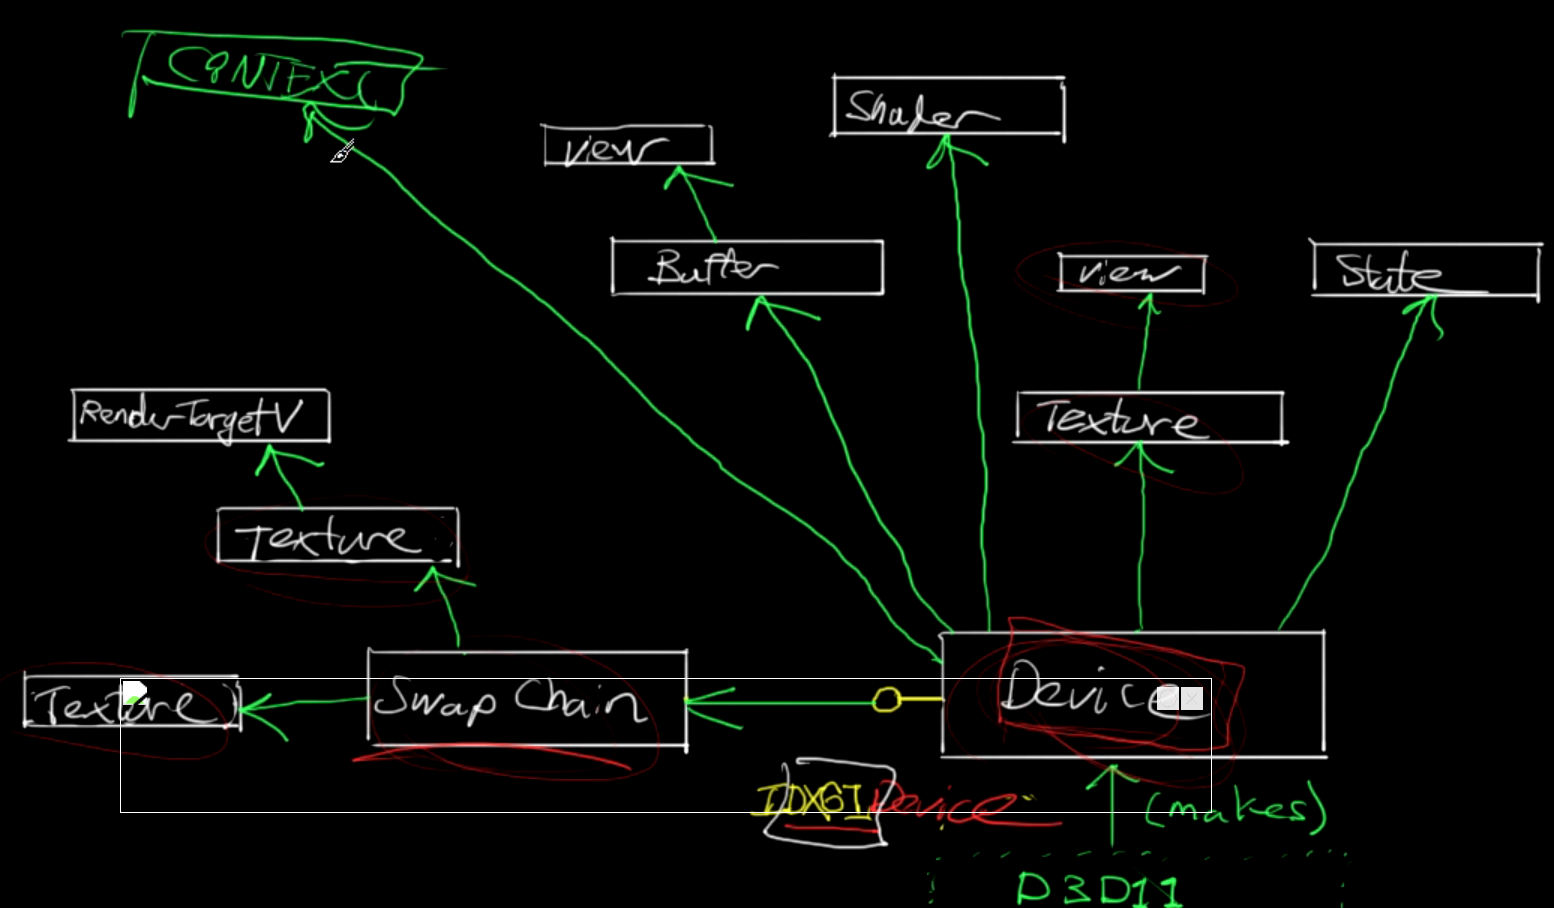 CONTEXT
Shader
view
Buffer
view
State
Render-TargetV
Texture
Texture
Texture
Swap Chain
Device
IDXGIDevice
(makes)
D3D11